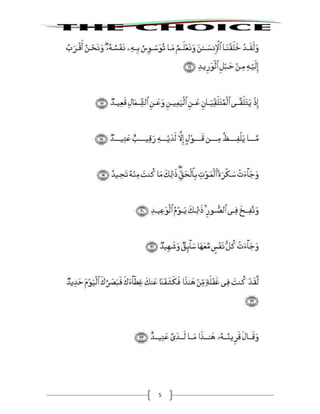 THE CHOICE
وَلَقَدْ خَلَقْنَا ٱلْإِنسَٰنَ وَنَعْلَمُ مَا تُوَسْوِسُ بِهِۦ نَفْسُهُۥ ۖ وَنَحْنُ أَقْرَبُ
إِلَيْهِ مِنْ حَبْلِ ٱلْوَرِيدِ ﴿١٦﴾
إِذْ يَتَلَقَّى ٱلْمُتَلَقِّيَانِ عَنِ ٱلْيَمِينِ وَعَنِ ٱلشِّمَالِ قَعِيدٌ ﴿١٧﴾
مَّا يَلْفِظُ مِن قَوْلٍ إِلَّا لَدَيْهِ رَقِيبٌ عَتِيدٌ ﴿١٨﴾
وَجَآءَتْ سَكْرَةُ ٱلْمَوْتِ بِٱلْحَقِّ ۖ ذَٰلِكَ مَا كُنتَ مِنْهُ تَحِيدُ ﴿١٩﴾
وَنُفِخَ فِى ٱلصُّورِ ۚ ذَٰلِكَ يَوْمُ ٱلْوَعِيدِ ﴿٢٠﴾
وَجَآءَتْ كُلُّ نَفْسٍ مَّعَهَا سَآئِقٌ وَشَهِيدٌ ﴿٢١﴾
لَّقَدْ كُنتَ فِى غَفْلَةٍ مِّنْ هَٰذَا فَكَشَفْنَا عَنكَ غِطَآءَكَ فَبَصَرُكَ ٱلْيَوْمَ حَدِيدٌ
﴿٢٢﴾
وَقَالَ قَرِينُهُۥ هَٰذَا مَا لَدَىَّ عَتِيدٌ ﴿٢٣﴾
5